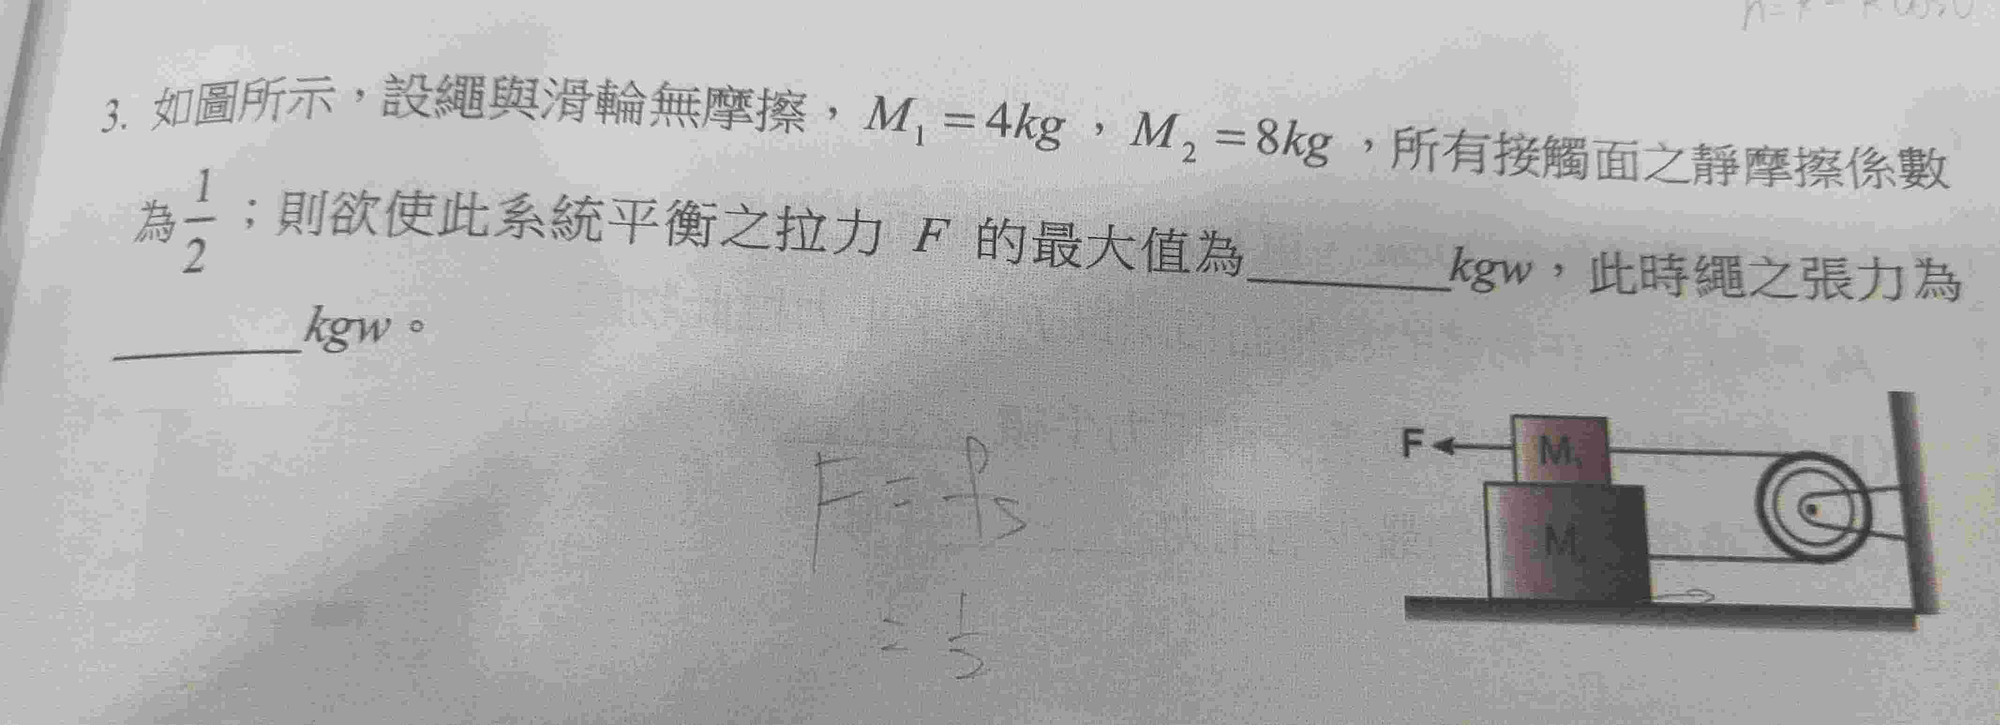 3. 如圖所示，設繩與滑輪無摩擦，M₁ = 4kg，M₂ = 8kg，所有接觸面之靜摩擦係數
為 1/2；則欲使此系統平衡之拉力 F 的最大值為______kgw，此時繩之張力為
______kgw。
F M₁
M
F = fs
= 1/2